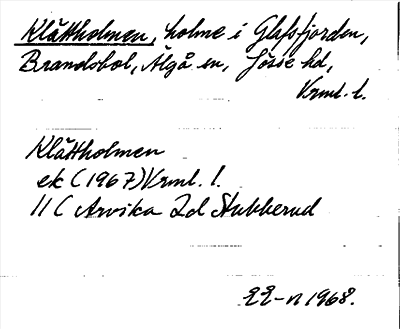 Klåttholmen, holme i Glafsfjorden,
Brandsbol, Älgå sn, Jösse hd,
Vrml. l.
Klåttholmen
ek (1967) Vrml. l.
11 C Arvika 2d Stubberud
1968.